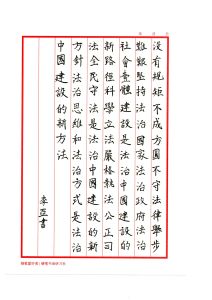 没有规矩不成方圆不守法律举步
难艰坚持法治国家法治政府法治
社会意体建设是法治中国建设的
新路径科学立法严格执法公正司
法全民守法是法治中国建设的新
方针法治思维和法治方式是法治
中国建设的新方法
李丕书